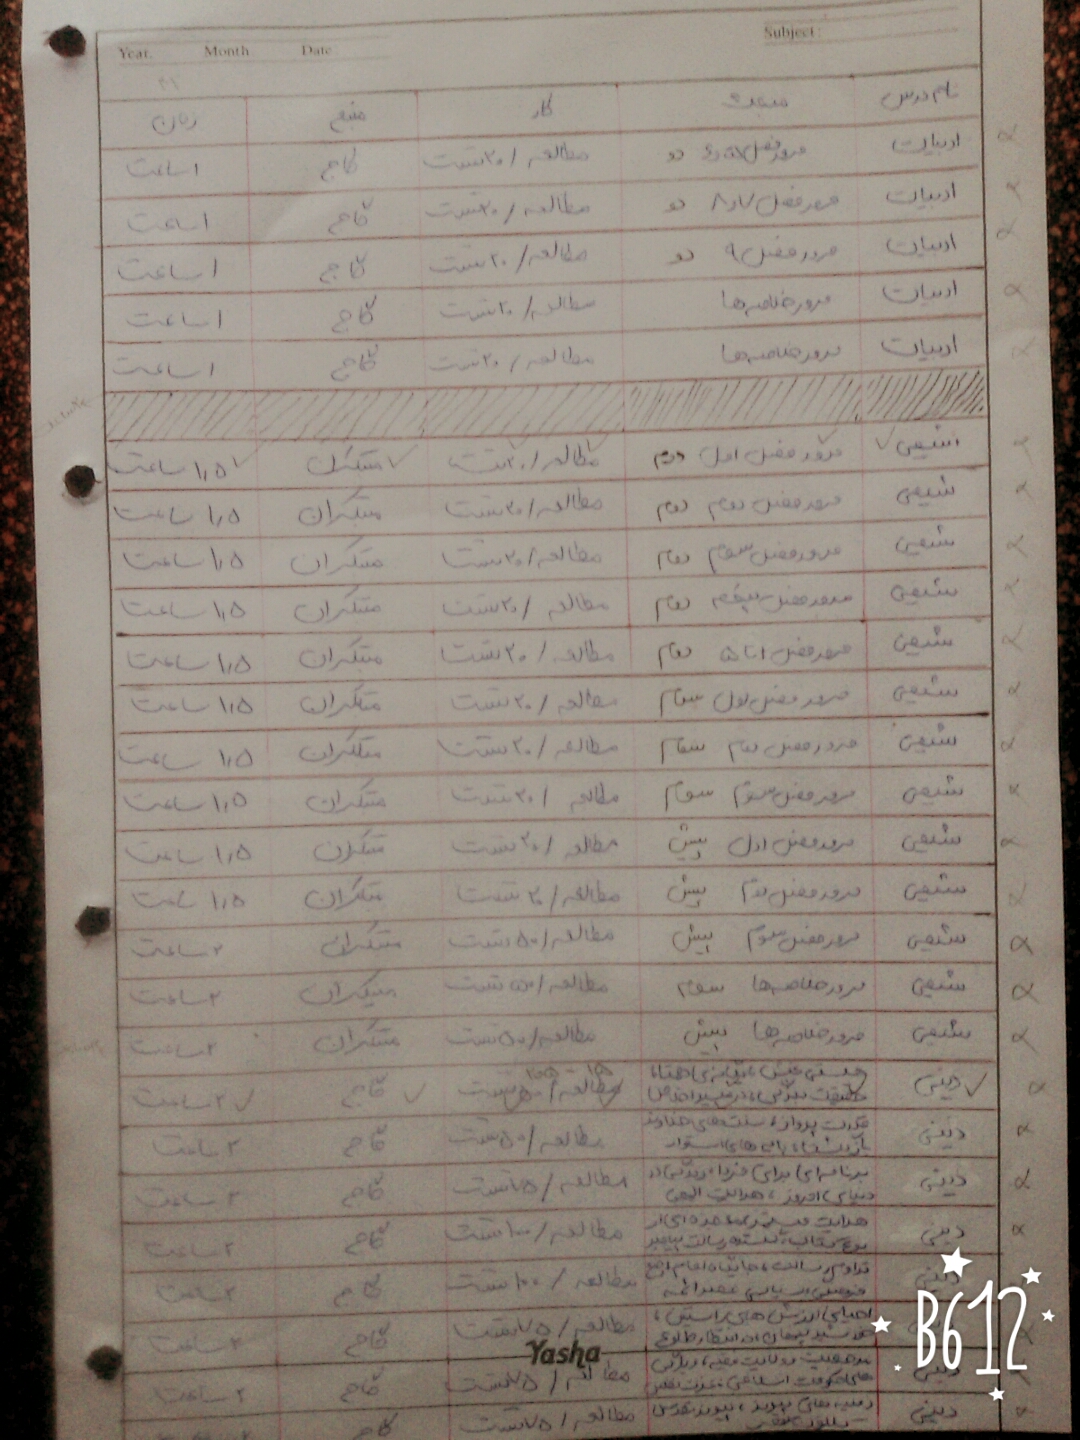 Year. Month Date Subject:
نام درس مبحث کار منبع زمان
ادبیات مرور فصل دو مطالعه / ۲۰ تست گاج ۱ ساعت
ادبیات مرور فصل ۷ و ۸ دو مطالعه / ۲۰ تست گاج ۱ ساعت
ادبیات مرور فصل ۹ دو مطالعه / ۲۰ تست گاج ۱ ساعت
ادبیات مرور خلاصه‌ها مطالعه / ۲۰ تست گاج ۱ ساعت
ادبیات مرور خلاصه‌ها مطالعه / ۲۰ تست گاج ۱ ساعت
شیمی مرور فصل اول دوم مطالعه / ۲۰ تست مبتکران ۱٫۵ ساعت
شیمی مرور فصل دوم دوم مطالعه / ۲۰ تست مبتکران ۱٫۵ ساعت
شیمی مرور فصل سوم دوم مطالعه / ۲۰ تست مبتکران ۱٫۵ ساعت
شیمی مرور فصل پنجم دوم مطالعه / ۲۰ تست مبتکران ۱٫۵ ساعت
شیمی مرور فصل ۱ تا ۵ دوم مطالعه / ۲۰ تست مبتکران ۱٫۵ ساعت
شیمی مرور فصل اول سوم مطالعه / ۲۰ تست مبتکران ۱٫۵ ساعت
شیمی مرور فصل دوم سوم مطالعه / ۲۰ تست مبتکران ۱٫۵ ساعت
شیمی مرور فصل سوم سوم مطالعه / ۲۰ تست مبتکران ۱٫۵ ساعت
شیمی مرور فصل اول پیش مطالعه / ۲۰ تست مبتکران ۱٫۵ ساعت
شیمی مرور فصل دوم پیش مطالعه / ۲۰ تست مبتکران ۱٫۵ ساعت
شیمی مرور فصل سوم پیش مطالعه / ۵۰ تست مبتکران ۲ ساعت
شیمی مرور خلاصه‌ها سوم مطالعه / ۵۰ تست مبتکران ۲ ساعت
شیمی مرور خلاصه‌ها پیش مطالعه / ۵۰ تست مبتکران ۲ ساعت
دینی مطالعه / تست گاج ۲ ساعت
دینی قدرت پرواز، سنت‌های خداوند مطالعه / ۵۰ تست گاج ۲ ساعت
بازگشت، پایه‌های استوار
دینی برنامه‌ای برای فردا، زندگی در مطالعه / ۷۵ تست گاج ۲ ساعت
دنیای امروز، هدایت الهی
دینی هدایت مستمر، معجزه‌ای از مطالعه / ۱۰۰ تست گاج ۲ ساعت
نوع کتاب، رسالت پیامبر
دینی تداوم رسالت، جانشینان مطالعه / ۱۰۰ تست گاج ۲ ساعت
احیای ارزش‌های راستین، مطالعه / ۷۵ تست گاج ۲ ساعت
خورشید پنهان، در انتظار طلوع
دینی مرجعیت و ولایت فقیه، ویژگی مطالعه / ۷۵ تست گاج ۲ ساعت
های حکومت اسلامی، عزت نفس
دینی زمینه‌های پیوند، پیوند مقدس مطالعه / ۷۵ تست گاج
Yasha
B612